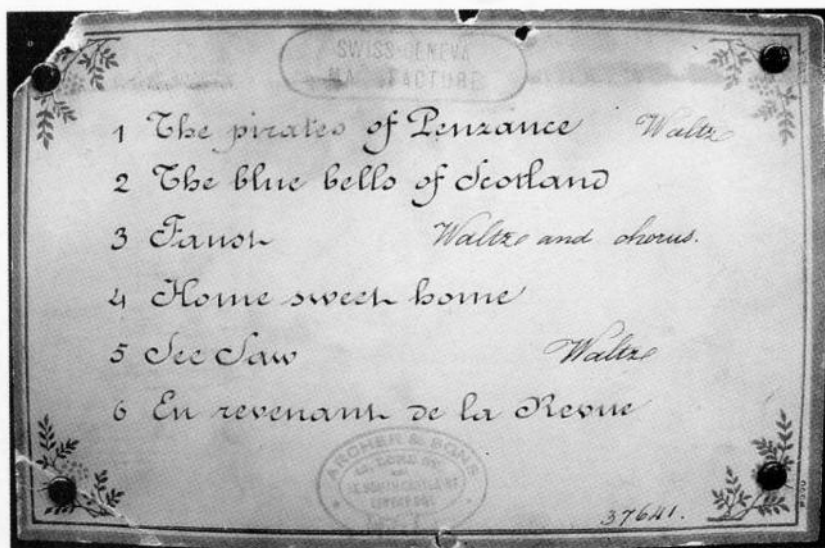 SWISS-GENEVA
1 The pirates of Penzance Waltz
2 The blue bells of Scotland
3 Faust Waltz and chorus.
4 Home sweet home
5 See Saw Waltz
6 En revenant de la Revue
ARCHER & SONS
LIVERPOOL
37641.